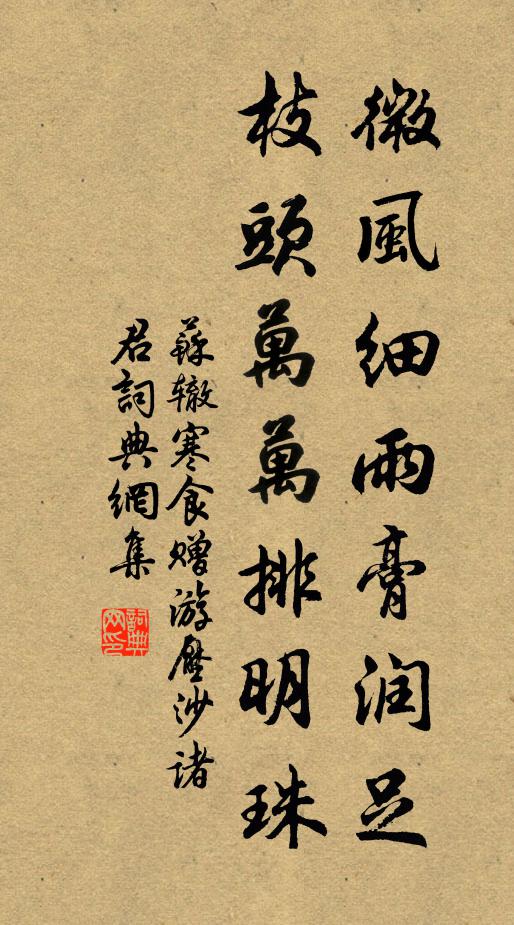 微風細雨膏润足
枝頭萬萬排明珠
蘇辙寒食赠游壓沙诸
君詞典網集
詞典
网印